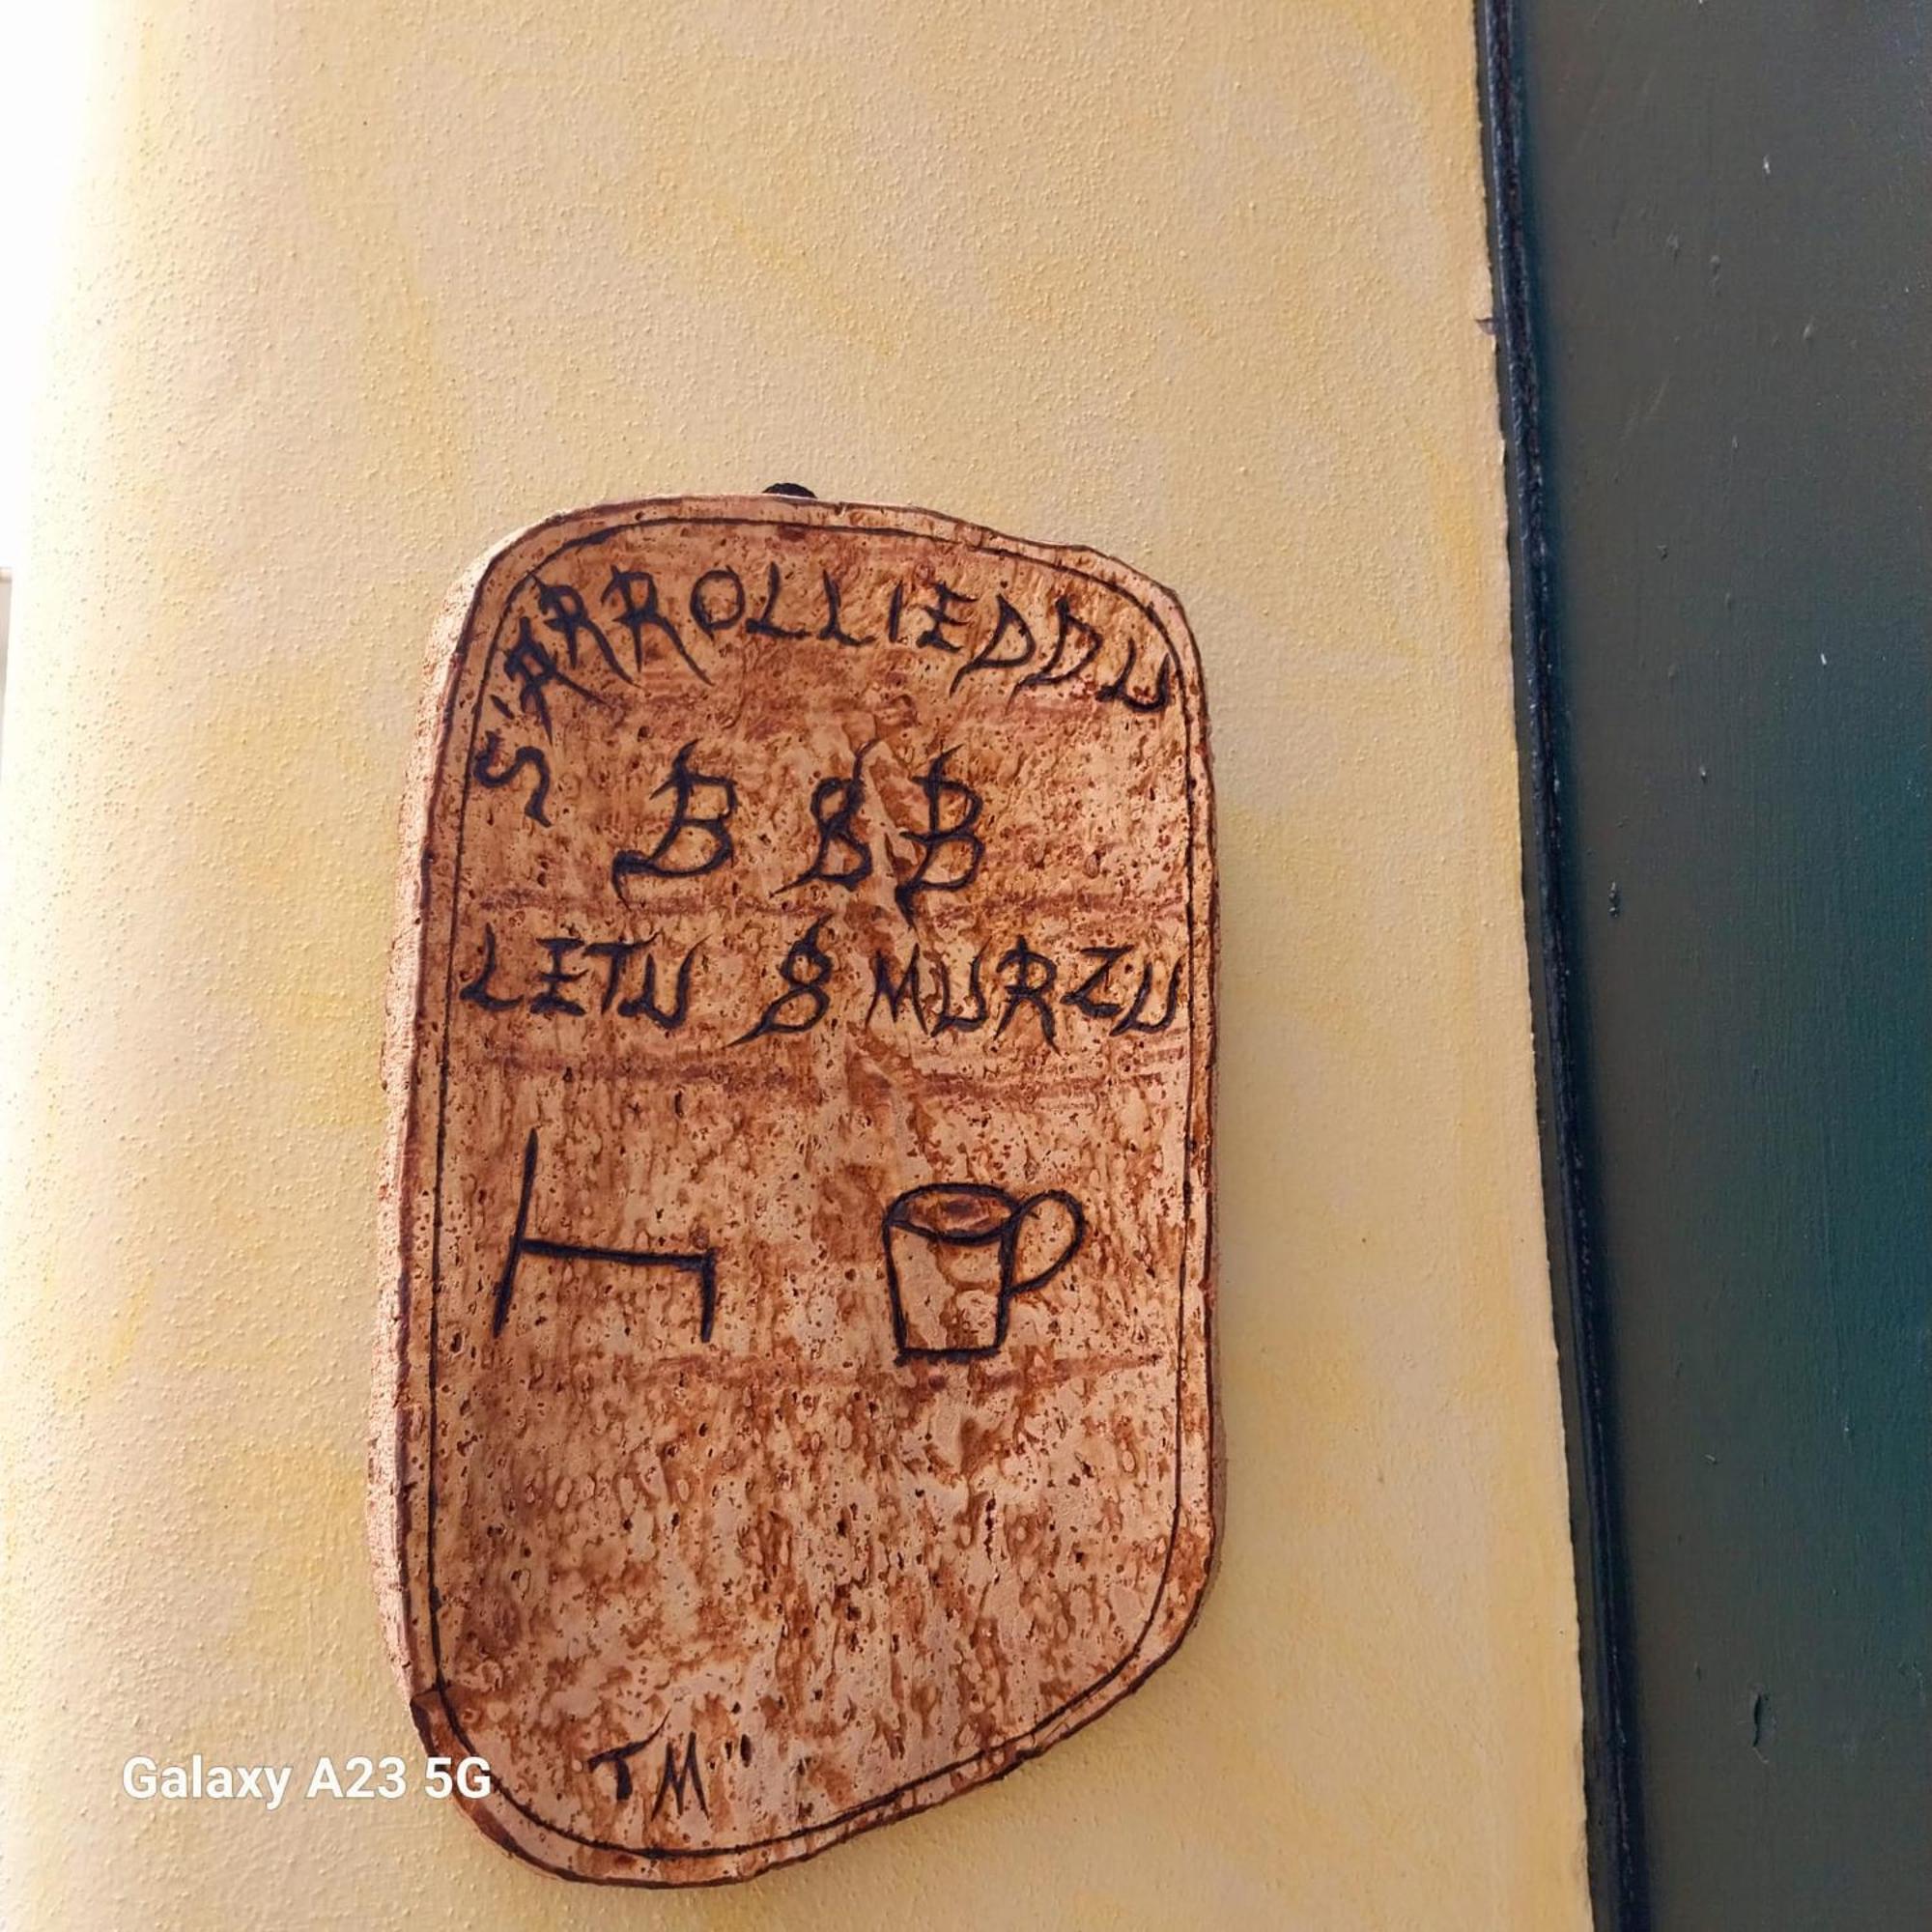 S'ARROLLIEDDU
B & B
LETU & MURZU
TM
Galaxy A23 5G